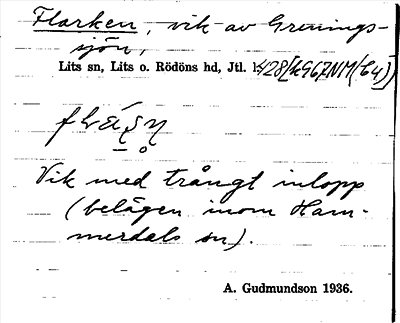 Flarken, vik av Grenings-
sjön,
Lits sn, Lits o. Rödöns hd, Jtl.
Vik med trångt inlopp
(belägen inom Ham-
merdals sn).
A. Gudmundson 1936.